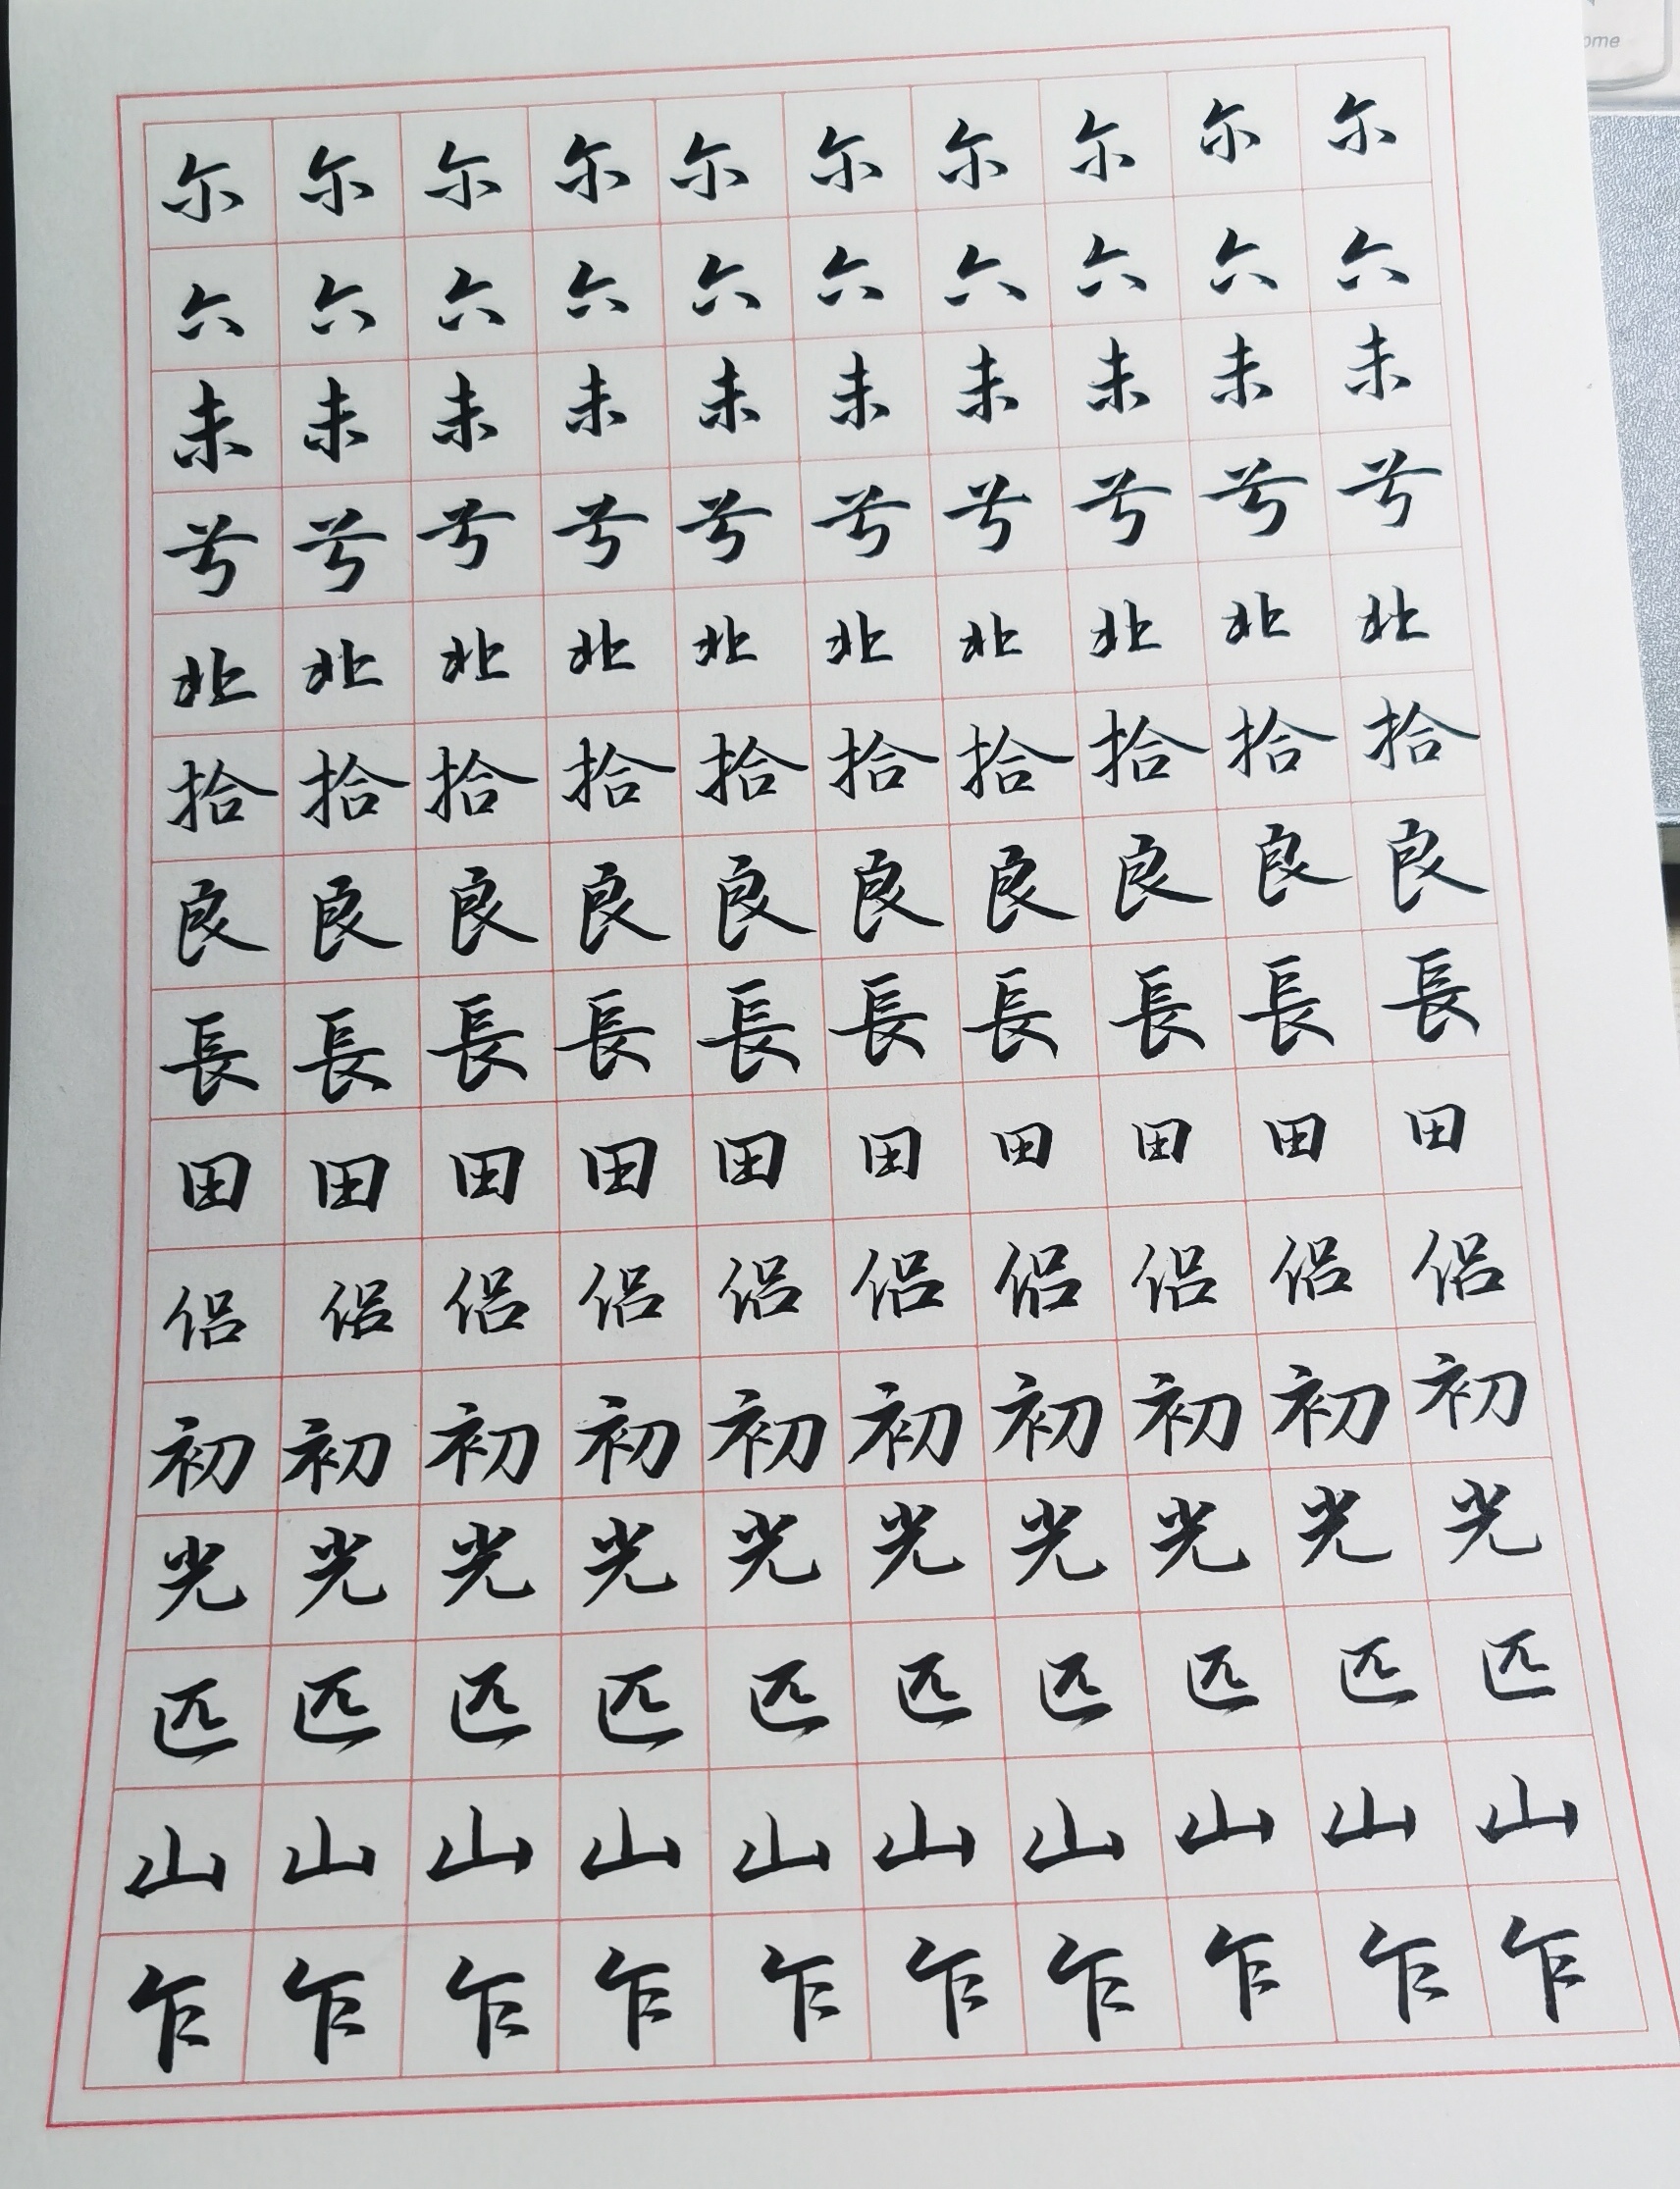 尔尔尔尔尔尔尔尔尔尔
六六六六六六六六六六
未未未未未未未未未未
兮兮兮兮兮兮兮兮兮兮
北北北北北北北北北北
拾拾拾拾拾拾拾拾拾拾
良良良良良良良良良良
長長長長長長長長長長
田田田田田田田田田田
侣侣侣侣侣侣侣侣侣侣
初初初初初初初初初初
光光光光光光光光光光
匹匹匹匹匹匹匹匹匹匹
山山山山山山山山山山
乍乍乍乍乍乍乍乍乍乍